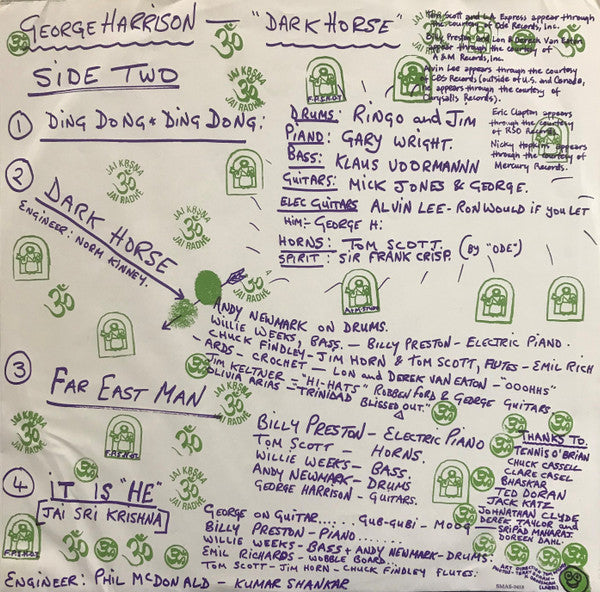 GEORGE HARRISON — "DARK HORSE"
SIDE TWO
Tom Scott and L.A. Express appear through
the courtesy of Ode Records, Inc.
Billy Preston and Lon & Derrek Van Eaton
appear through the courtesy of
A & M Records, Inc.
Alvin Lee appears through the courtesy
of CBS Records (outside of U.S. and Canada,
he appears through the courtesy of
Chrysalis Records).
Eric Clapton appears
through the courtesy
of RSO Records
Nicky Hopkins appears
through the courtesy of
Mercury Records.
① DING DONG & DING DONG:
DRUMS: RINGO and JIM
PIANO: GARY WRIGHT.
BASS: KLAUS VOORMANNN
GUITARS: MICK JONES & GEORGE.
ELEC GUITARS ALVIN LEE - RON WOULD IF YOU LET
HIM:- GEORGE H:
HORNS: TOM SCOTT. (BY "ODE")
SPIRIT: SIR FRANK CRISP.
② DARK HORSE
ENGINEER: NORM KINNEY.
ANDY NEWMARK ON DRUMS.
WILLIE WEEKS, BASS. — BILLY PRESTON - ELECTRIC PIANO.
CHUCK FINDLEY - JIM HORN & TOM SCOTT, FLUTES - EMIL RICH
- ARDS - CROCHET — LON and DEREK VAN EATON - "OOOHHS"
JIM KELTNER - "HI-HATS" ROBBEN FORD & GEORGE GUITARS
OLIVIA ARIAS - "TRINIDAD BLISSED OUT"
③ FAR EAST MAN
BILLY PRESTON - ELECTRIC PIANO
TOM SCOTT - HORNS.
WILLIE WEEKS - BASS.
ANDY NEWMARK - DRUMS
GEORGE HARRISON - GUITARS.
④ iT IS "HE"
[JAI SRI KRISHNA]
GEORGE ON GUITAR...... GUB-GUBI - MOOG
BILLY PRESTON - PIANO......
WILLIE WEEKS - BASS + ANDY NEWMARK - DRUMS.
EMIL RICHARDS - WOBBLE BOARD..
TOM SCOTT - JIM HORN - CHUCK FINDLEY FLUTES.
ENGINEER: PHIL McDONALD - KUMAR SHANKAR
THANKS TO.
TENNIS O'BRIAN
CHUCK CASSELL
CLARE CASEL
BHASKAR
TED DORAN
JACK KATZ
JOHNATHAN CLYDE
DEREK TAYLOR and
SRIPAD MAHARAJ.
DOREEN DAHL.
SMAS-3418
JAI KRSNA
ॐ
JAI RADHE
JAI KRSNA
ॐ
JAI RADHE
JAI KRSNA
ॐ
JAI RADHE
F.P.S.H.O.T.
A.I.M. STUDIO